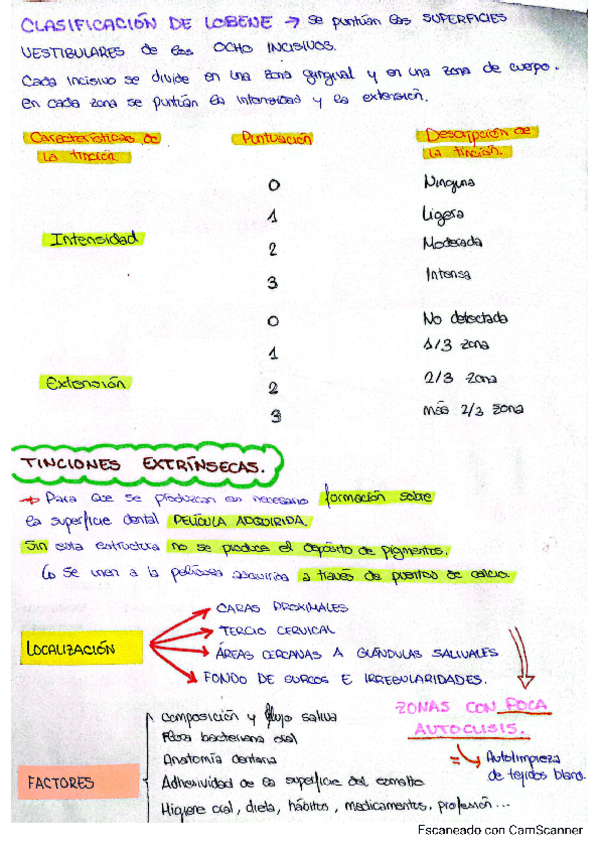 CLASIFICACIÓN DE LOBENE → Se puntúan las SUPERFICIES
VESTIBULARES de los OCHO INCISIVOS.
Cada incisivo se divide en una zona gingival y en una zona de cuerpo.
En cada zona se puntúan la intensidad y la extensión.
Características de la tinción. Puntuación Descripción de la tinción.
Intensidad
0 Ninguna
1 Ligera
2 Moderada
3 Intensa
Extensión
0 No detectada
1 1/3 zona
2 2/3 zona
3 más 2/3 zona
TINCIONES EXTRÍNSECAS.
→ Para que se produzcan es necesario formación sobre
la superficie dental PELÍCULA ADQUIRIDA.
Sin esta estructura no se produce el depósito de pigmentos.
↳ Se unen a la película adquirida a través de puentes de calcio.
LOCALIZACIÓN
CARAS PROXIMALES
TERCIO CERVICAL
ÁREAS CERCANAS A GLÁNDULAS SALIVALES
FONDO DE SURCOS E IRREGULARIDADES.
ZONAS CON POCA
AUTOCLISIS.
=> Autolimpieza
de tejidos bland.
FACTORES
Composición y flujo saliva
Flora bacteriana oral
Anatomía dentaria
Adhesividad de la superficie del esmalte
Higiene oral, dieta, hábitos, medicamentos, profesión...
Escaneado con CamScanner